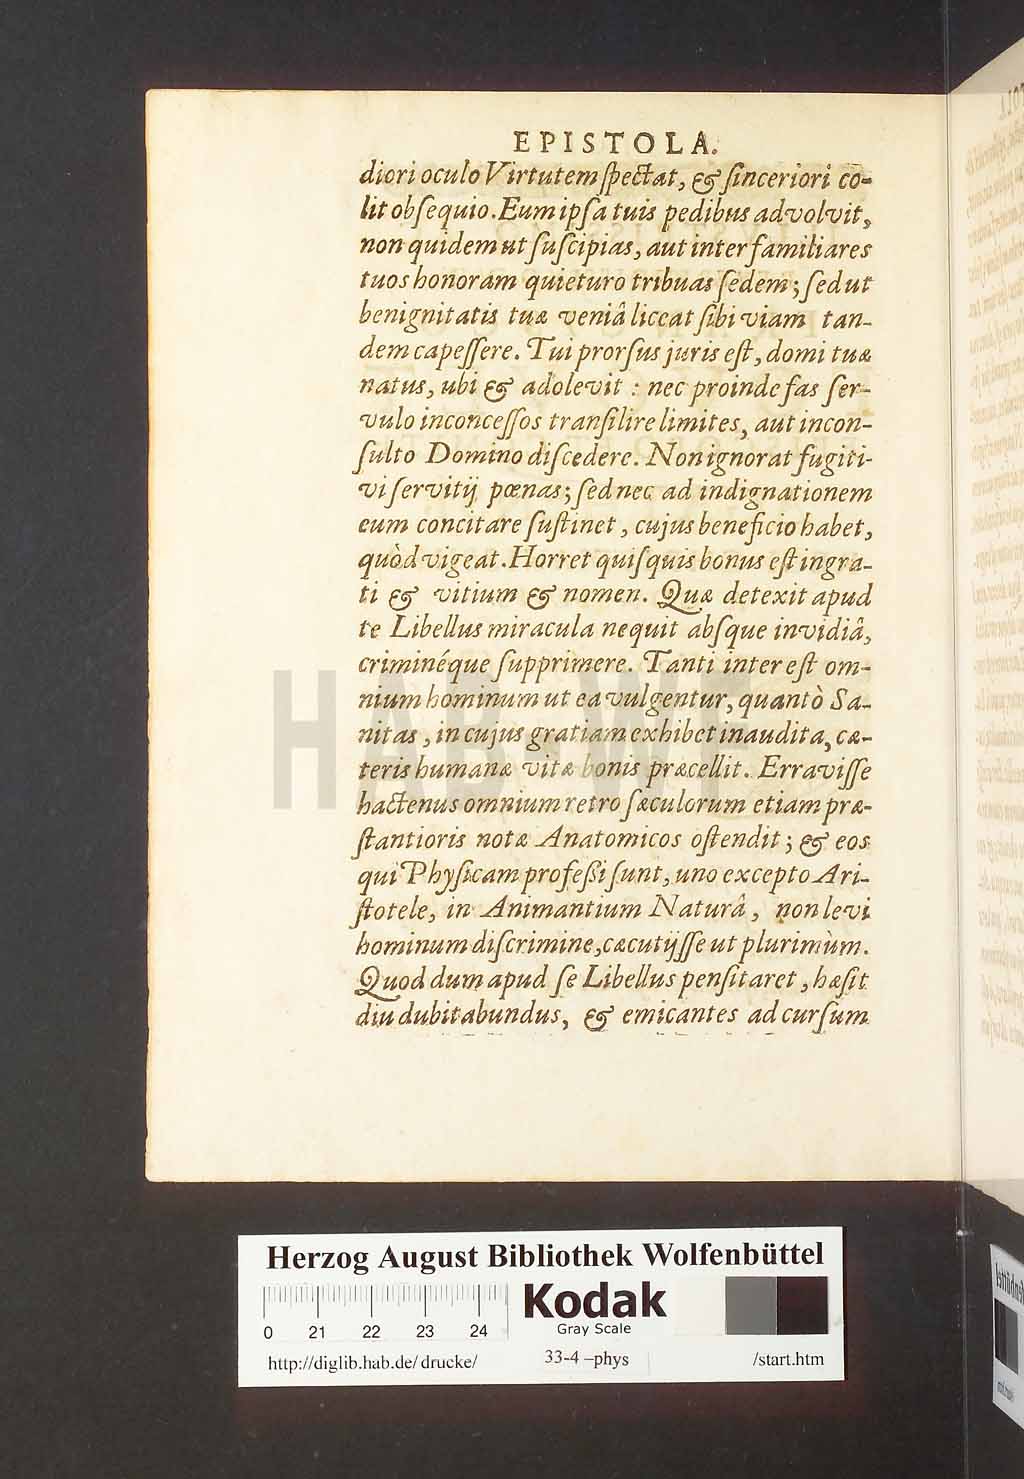 EPISTOLA.
diori oculo Virtutem ſpectat, & ſinceriori co-
lit obſequio. Eum ipſa tuis pedibus advolvit,
non quidem ut ſuſcipias, aut inter familiares
tuos honoram quieturo tribuas ſedem; ſed ut
benignitatis tuæ veniâ liceat ſibi viam tan-
dem capeſſere. Tui prorſus juris eſt, domi tuæ
natus, ubi & adolevit : nec proinde fas ſer-
vulo inconceſſos tranſilire limites, aut incon-
ſulto Domino diſcedere. Non ignorat fugiti-
vi ſervitij pœnas; ſed nec ad indignationem
eum concitare ſuſtinet, cujus beneficio habet,
quòd vigeat. Horret quiſquis bonus eſt ingra-
ti & vitium & nomen. Quæ detexit apud
te Libellus miracula nequit abſque invidiâ,
criminéque ſupprimere. Tanti intereſt om-
nium hominum ut ea vulgentur, quantò Sa-
nitas, in cujus gratiam exhibet inaudita, cæ-
teris humanæ vitæ bonis præcellit. Erraviſſe
hactenus omnium retro ſæculorum etiam præ-
ſtantioris notæ Anatomicos oſtendit; & eos
qui Phyſicam profeßi ſunt, uno excepto Ari-
ſtotele, in Animantium Naturâ, non levi
hominum diſcrimine, cæcutijſſe ut plurimùm.
Quod dum apud ſe Libellus penſitaret, hæſit
diu dubitabundus, & emicantes ad curſum
HAB-WF
Herzog August Bibliothek Wolfenbüttel
0 21 22 23 24
Kodak
Gray Scale
http://diglib.hab.de/drucke/ 33-4-phys /start.htm